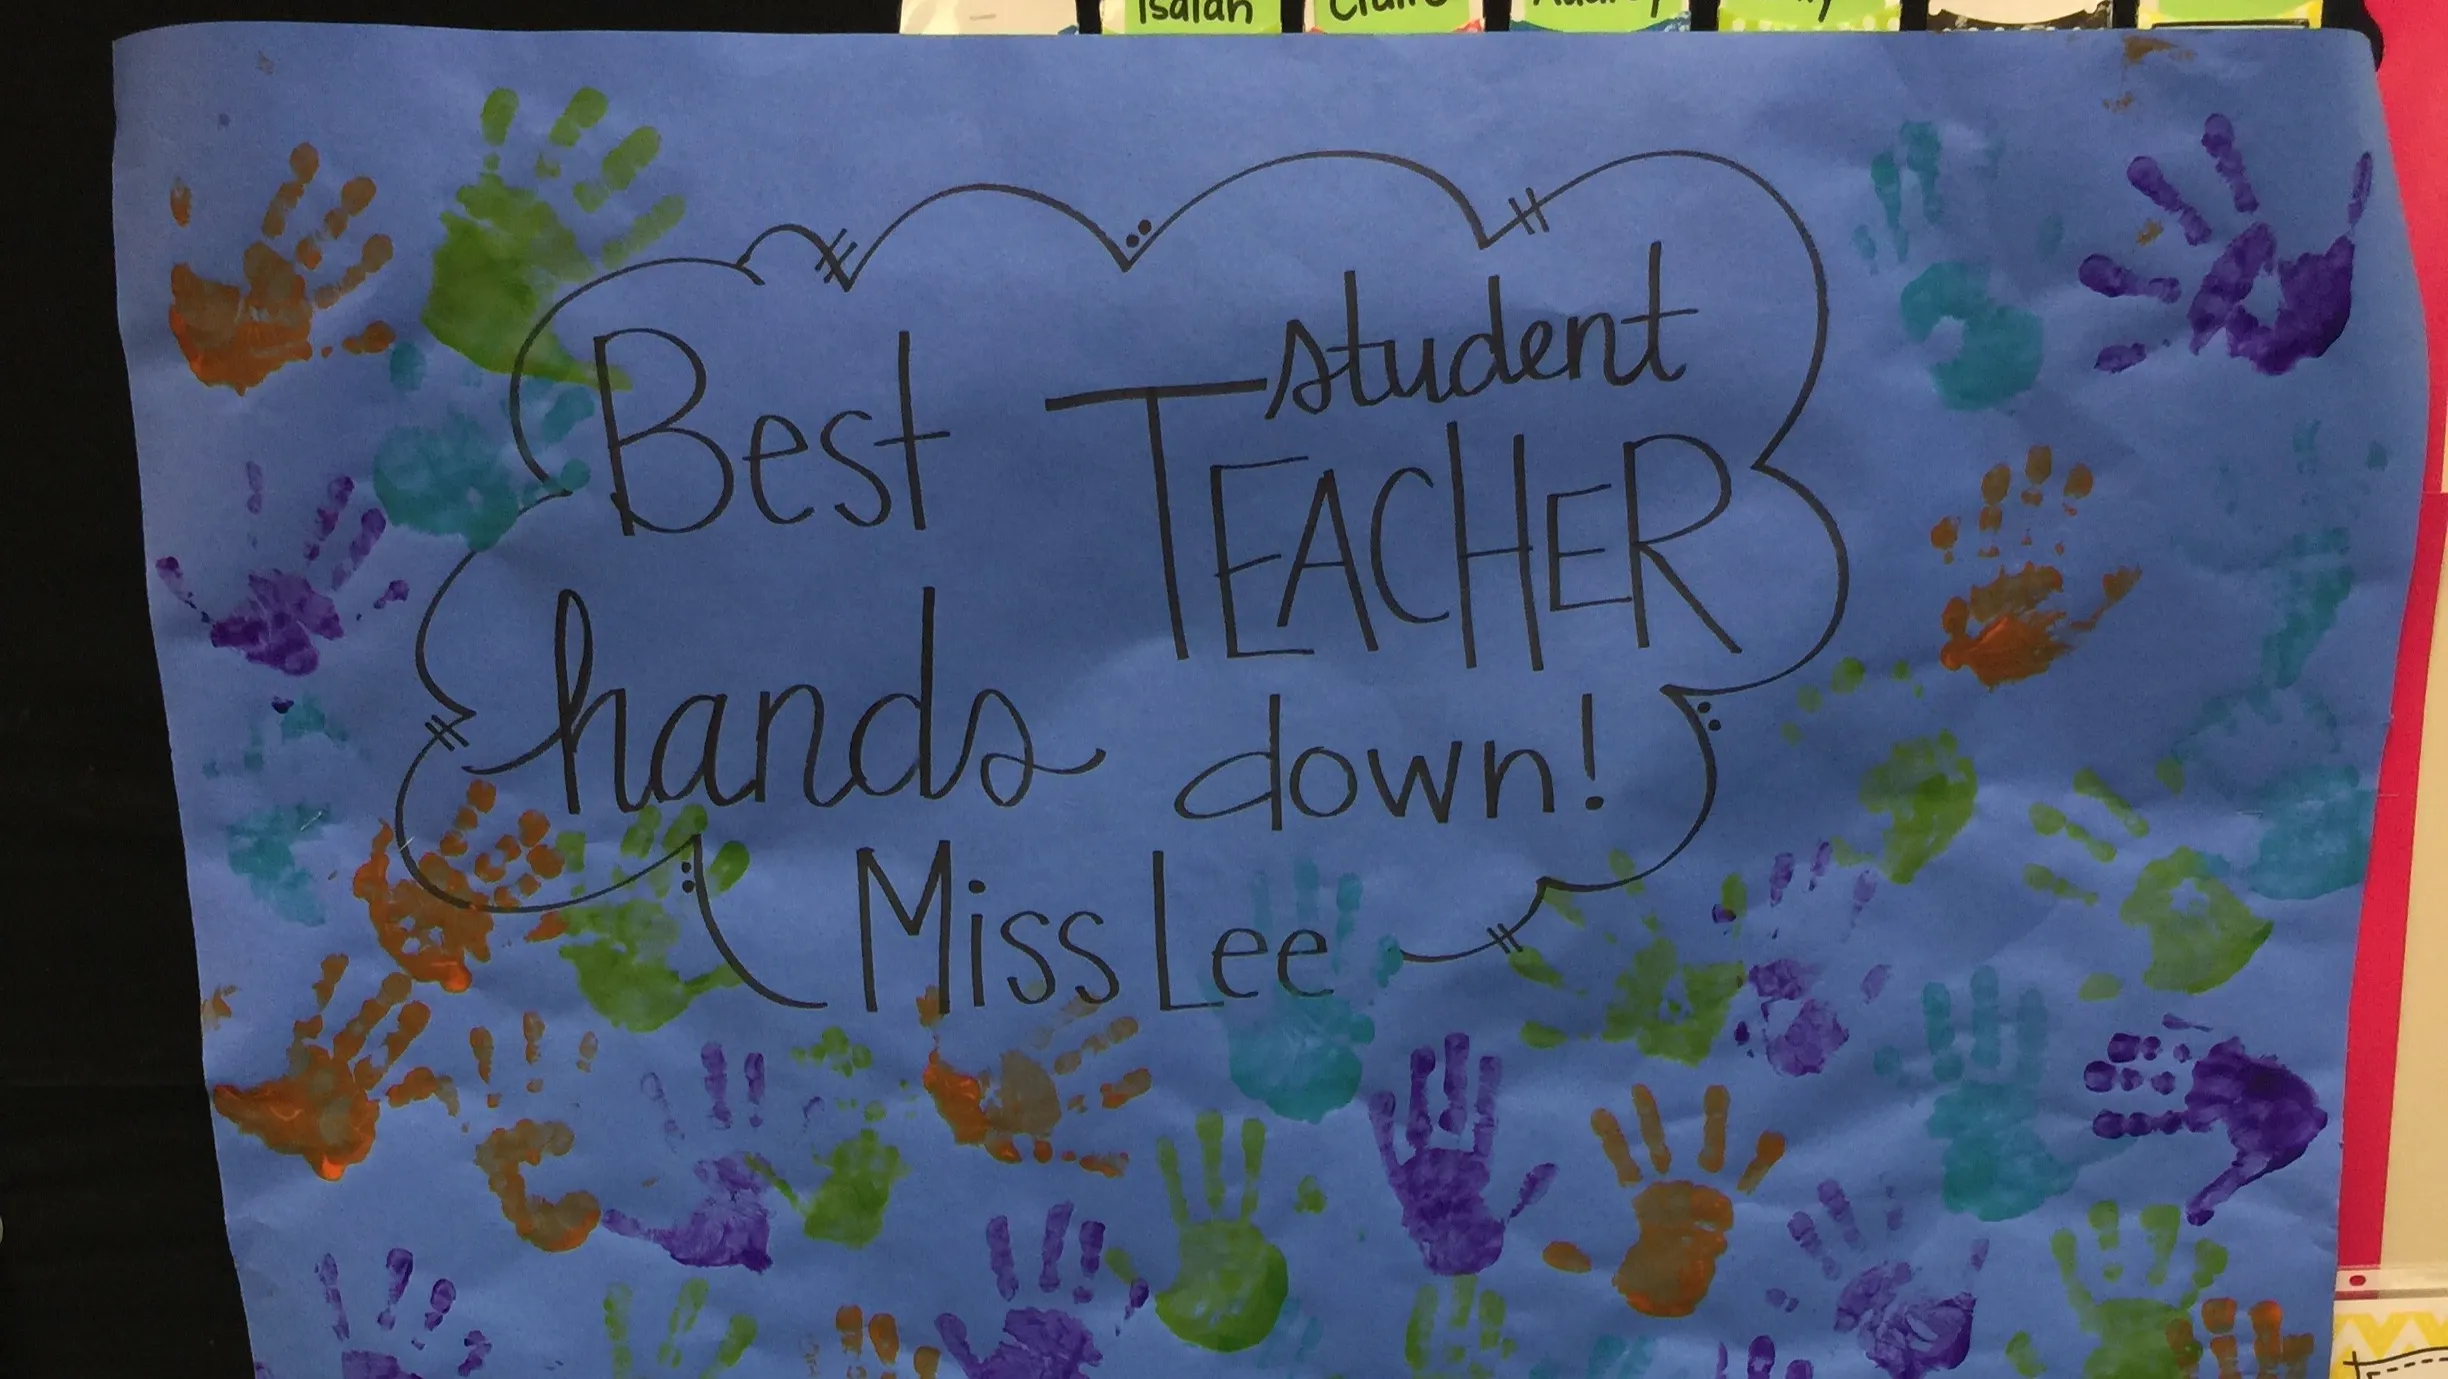 Isaiah Claire
Best student
TEACHER
hands down!
Miss Lee